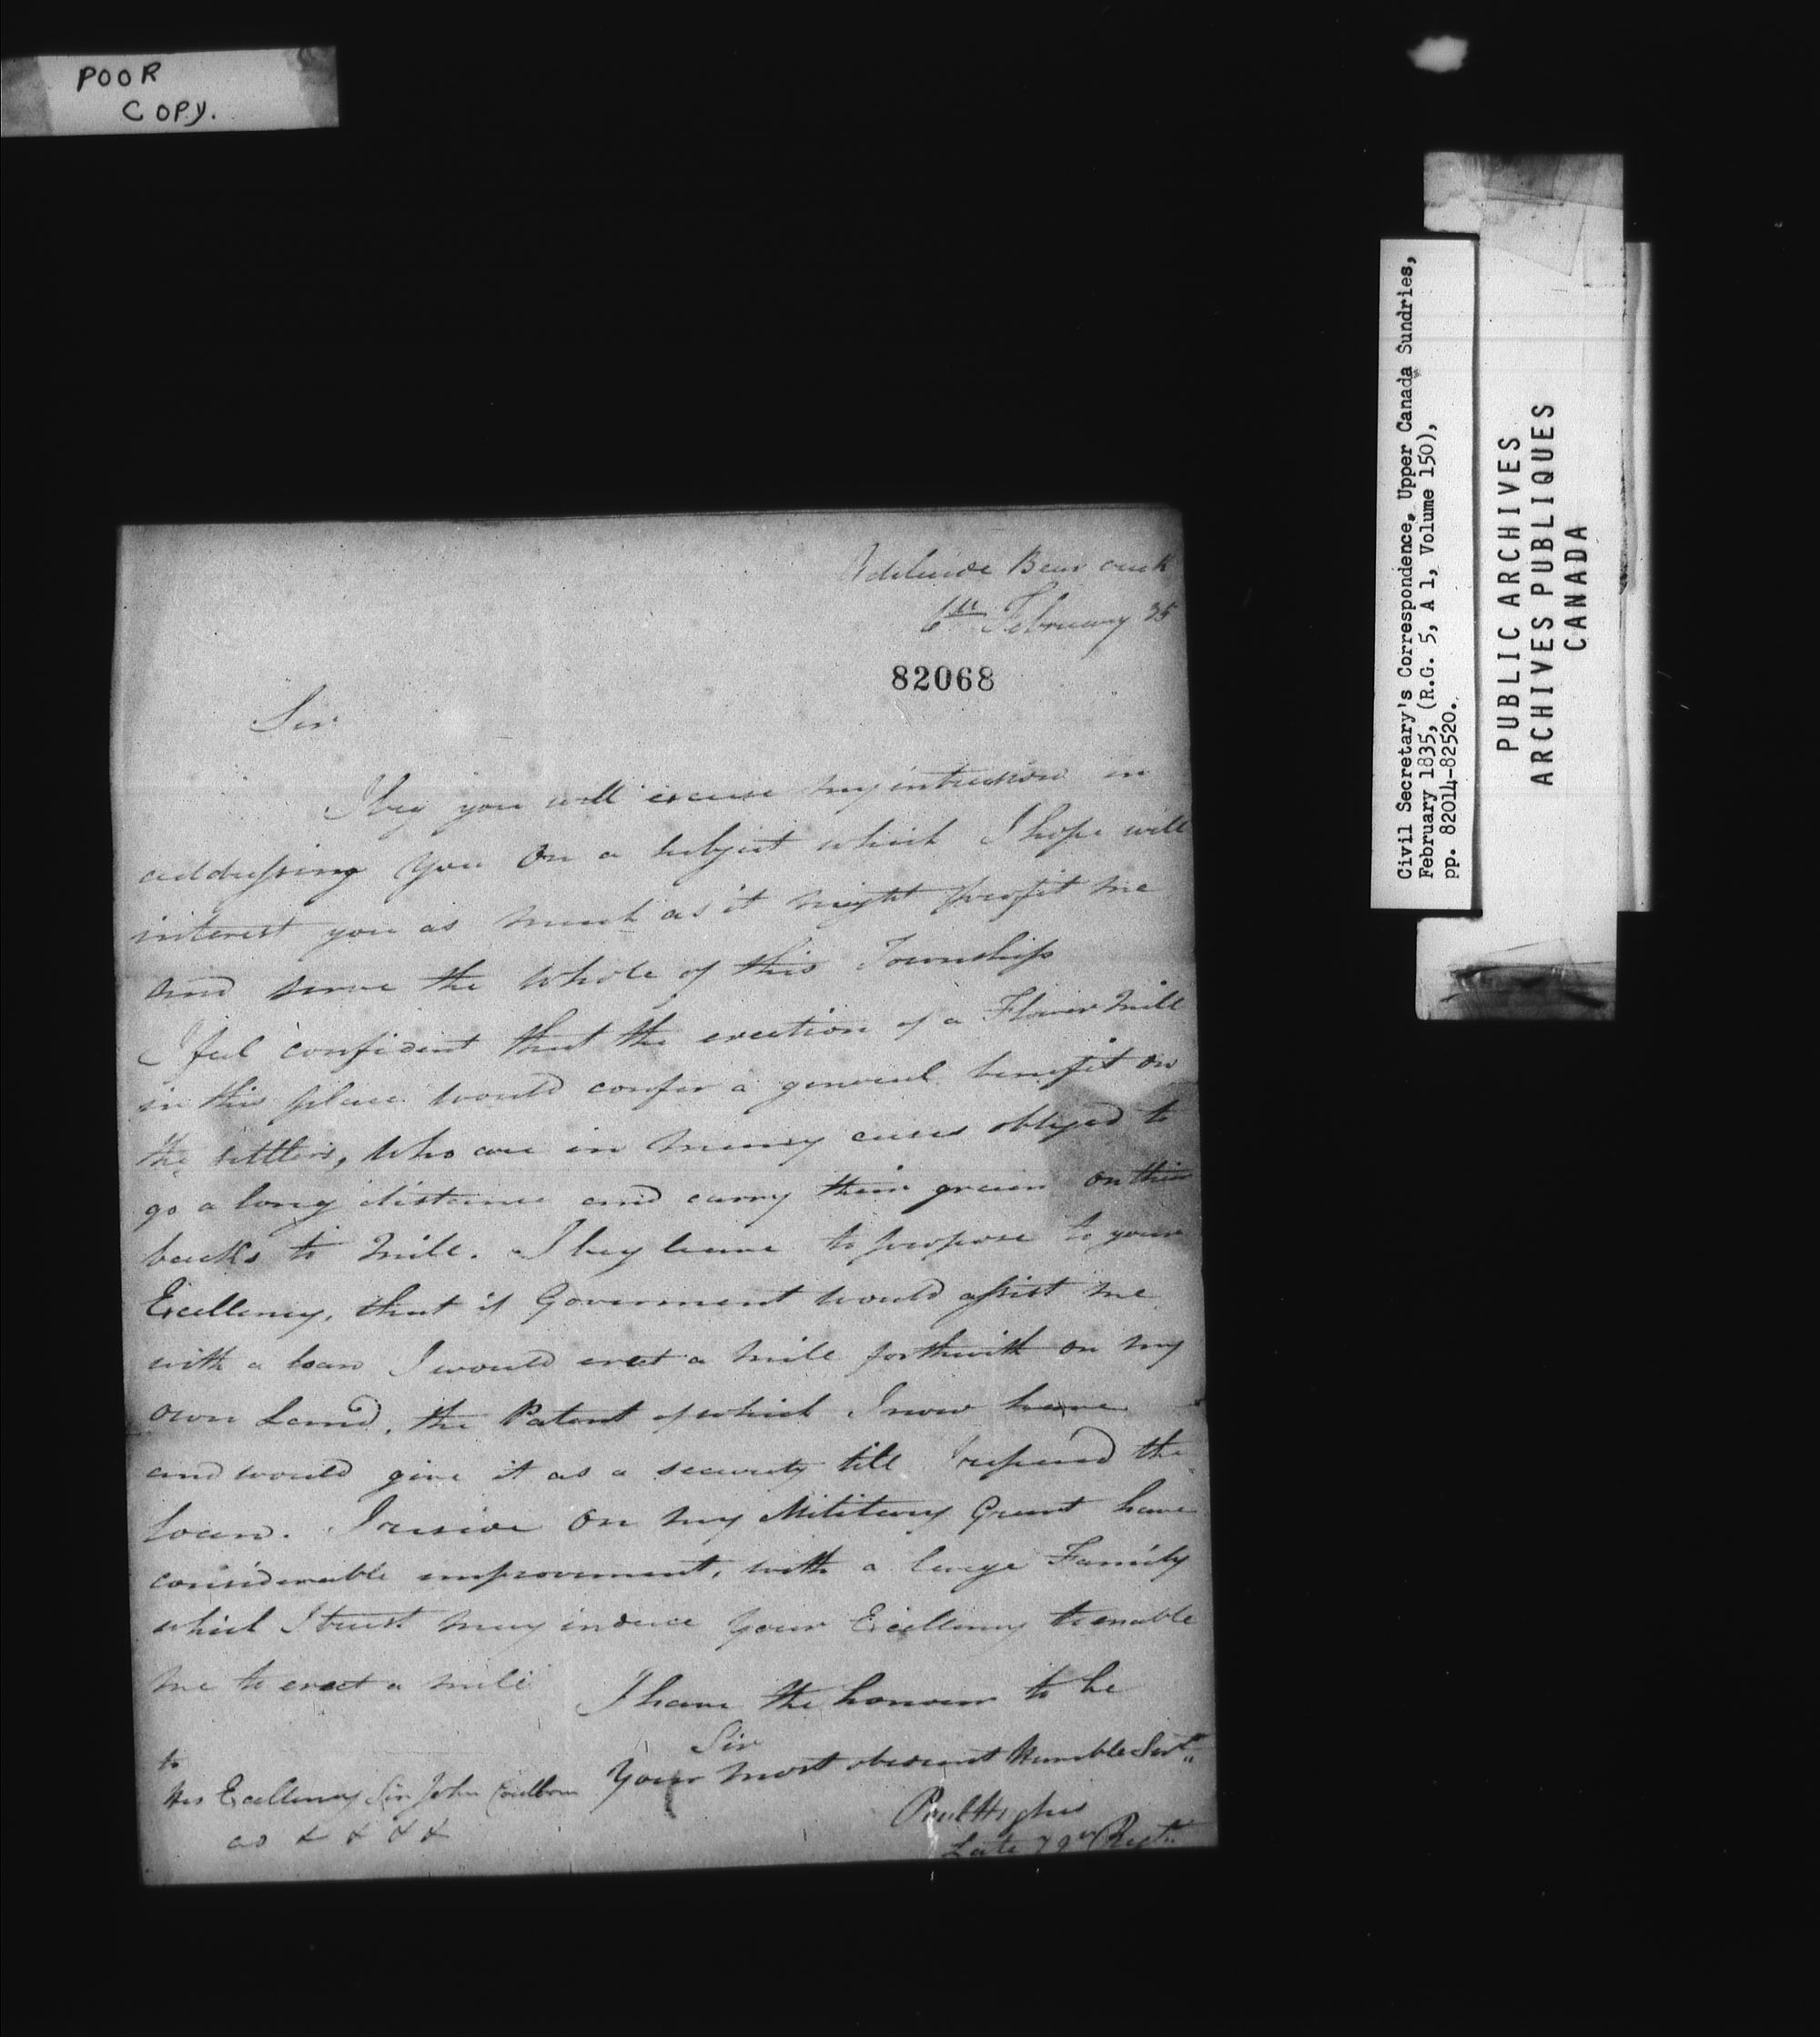 POOR
COPY.
Adelaide Bear creek
6th February 35
82068
Sir
I beg you will excuse my intrusion in
addressing you on a subject which I hope will
interest you as much as it might profit me
and serve the whole of this Township
I feel confident that the erection of a Flower Mill
in this place would confer a general benefit on
the settlers, who are in many cases obliged to
go a long distance and carry their grain on their
backs to Mill. I beg leave to propose to your
Excellency, that if Goverment would assist me
with a loan I would erect a mill forthwith on my
own Land, the Patent of which I now have
and would give it as a security till I repaid the
loan. I reside on my Military Grant have
considerable improvement, with a large Family
which I trust may induce your Excellency to enable
me to erect a mill
I have the honour to be
Sir
Your most obedient Humble Servt
Paul Hughes
Late 79th Regt
to
His Excellency Sir John Coulborn
as & & & &
Civil Secretary's Correspondence, Upper Canada Sundries,
February 1835, (R.G. 5, A 1, Volume 150),
pp. 82014-82520.
PUBLIC ARCHIVES
ARCHIVES PUBLIQUES
CANADA